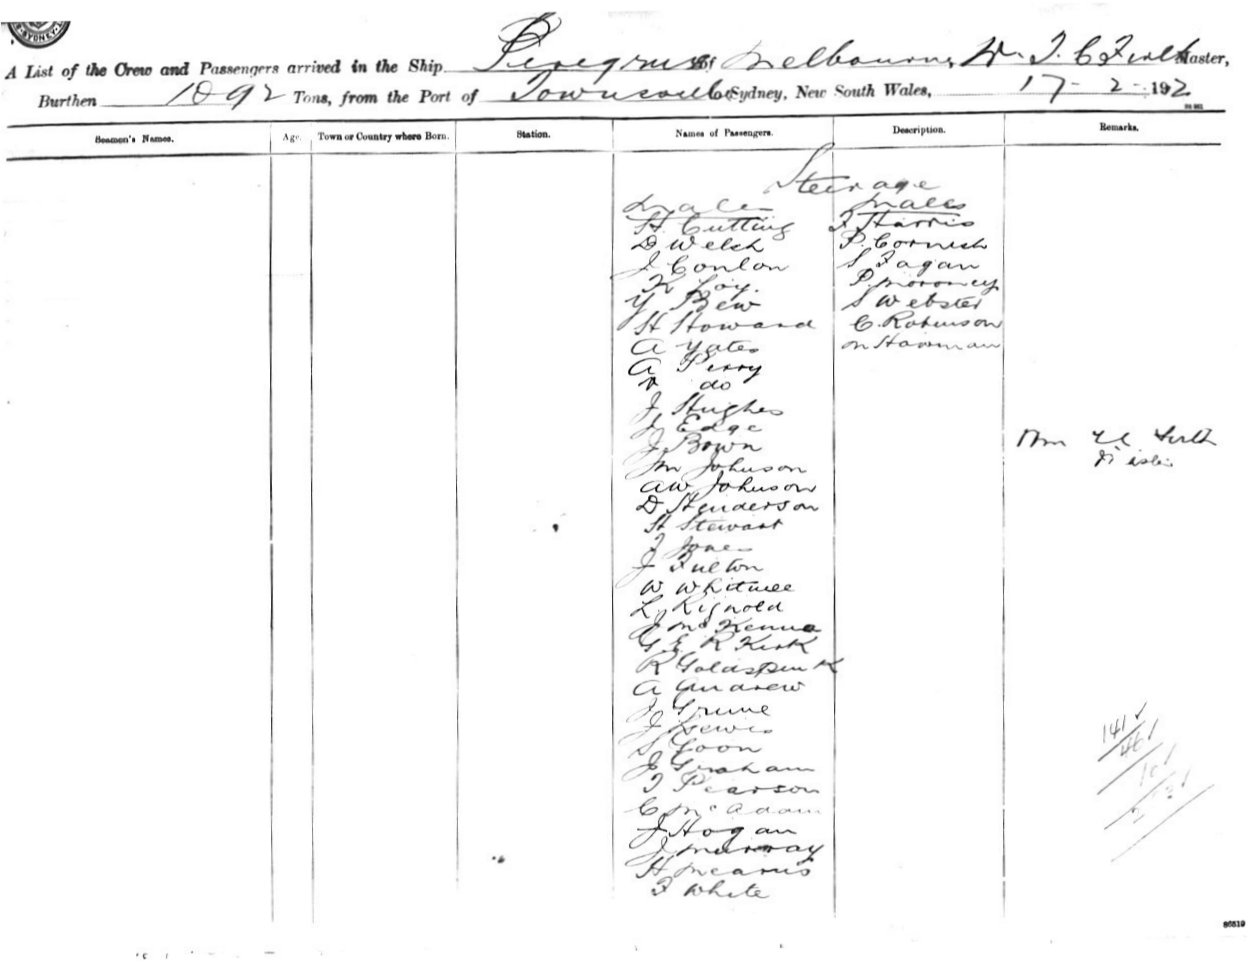 SYDNEY
A List of the Crew and Passengers arrived in the Ship Peregrine of Melbourne, Wm T. C Firth Master,
Burthen 1892 Tons, from the Port of Townsville to Sydney, New South Wales, 17-2-192
Seamen's Names. Age. Town or Country where Born. Station. Names of Passengers. Description. Remarks.
Steerage
Males Males
H. Cutting F Harris
D Welch P. Cornish
J Conlon S Fagan
K Loy. P. Moroney
Y Bew S Webster
H Howard C. Robinson
A Yates M Harman
A Perry
V do
J Hughes
J Edge
J Bown Wm Firth
M Johnson
AW Johnson
D Henderson
H Stewart
J Jones
J Fulton
W Whitmee
L Rignold
J McKenna
G. E. R Kirk
R Goldspink
A Andrew
J Grune
J Lewis 141
S Goon 46
J Graham
T Pearson
C McAdam
J Hogan
J Murray
H Mearns
F White
86519